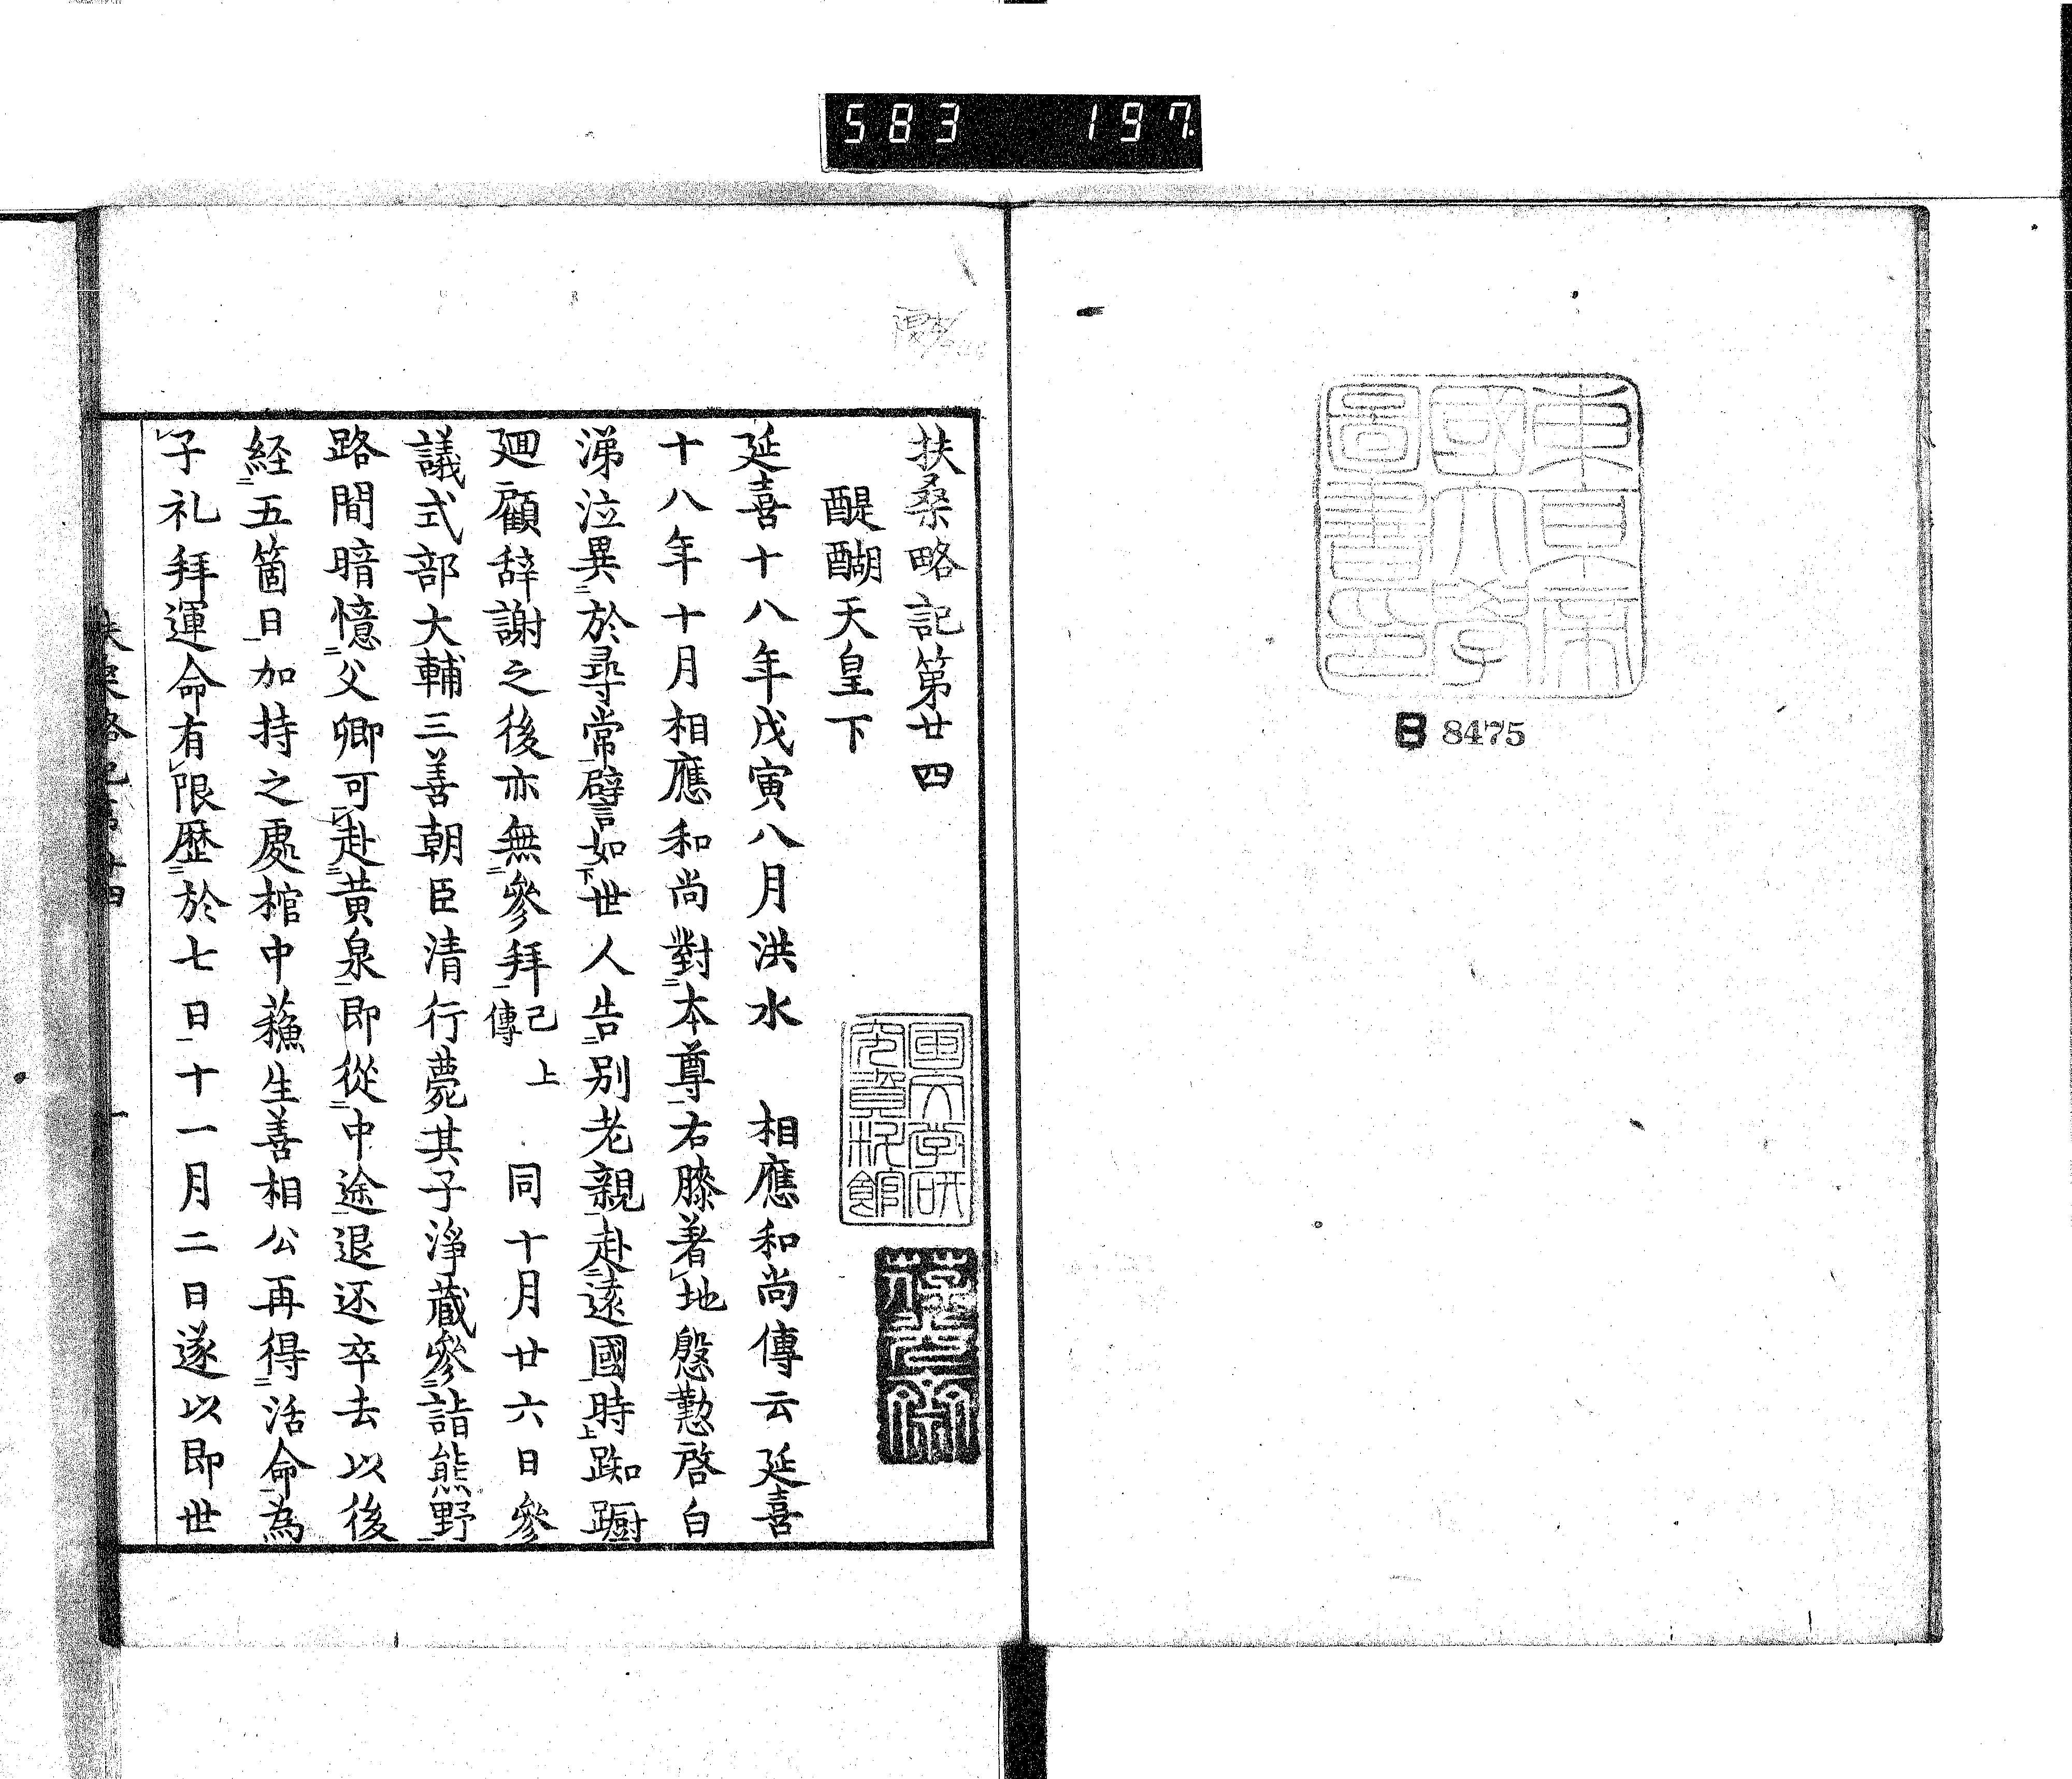 583 197
東京帝
國大學
圖書印
8475
扶桑略記第廿四
醍醐天皇下
延喜十八年戊寅八月洪水 相應和尚傳云延喜
十八年十月相應和尚對二本尊一右膝著レ地慇懃啓白
涕泣異二於尋常一譬言如下世人告二別老親一赴二遠國一時上踟蹰
廻顧辞謝之後亦無二參拜一已上傳 同十月廿六日參
議式部大輔三善朝臣清行薨其子淨藏參二詣熊野一
路間暗憶二父卿可レ赴二黄泉一即從二中途一退还卒去以後
経二五箇日一加持之處棺中蘓生善相公再得二活命一為
レ子礼拜運命有レ限歴二於七日一十一月二日遂以即世
国文学研
究資料館
扶桑略記第廿四 一